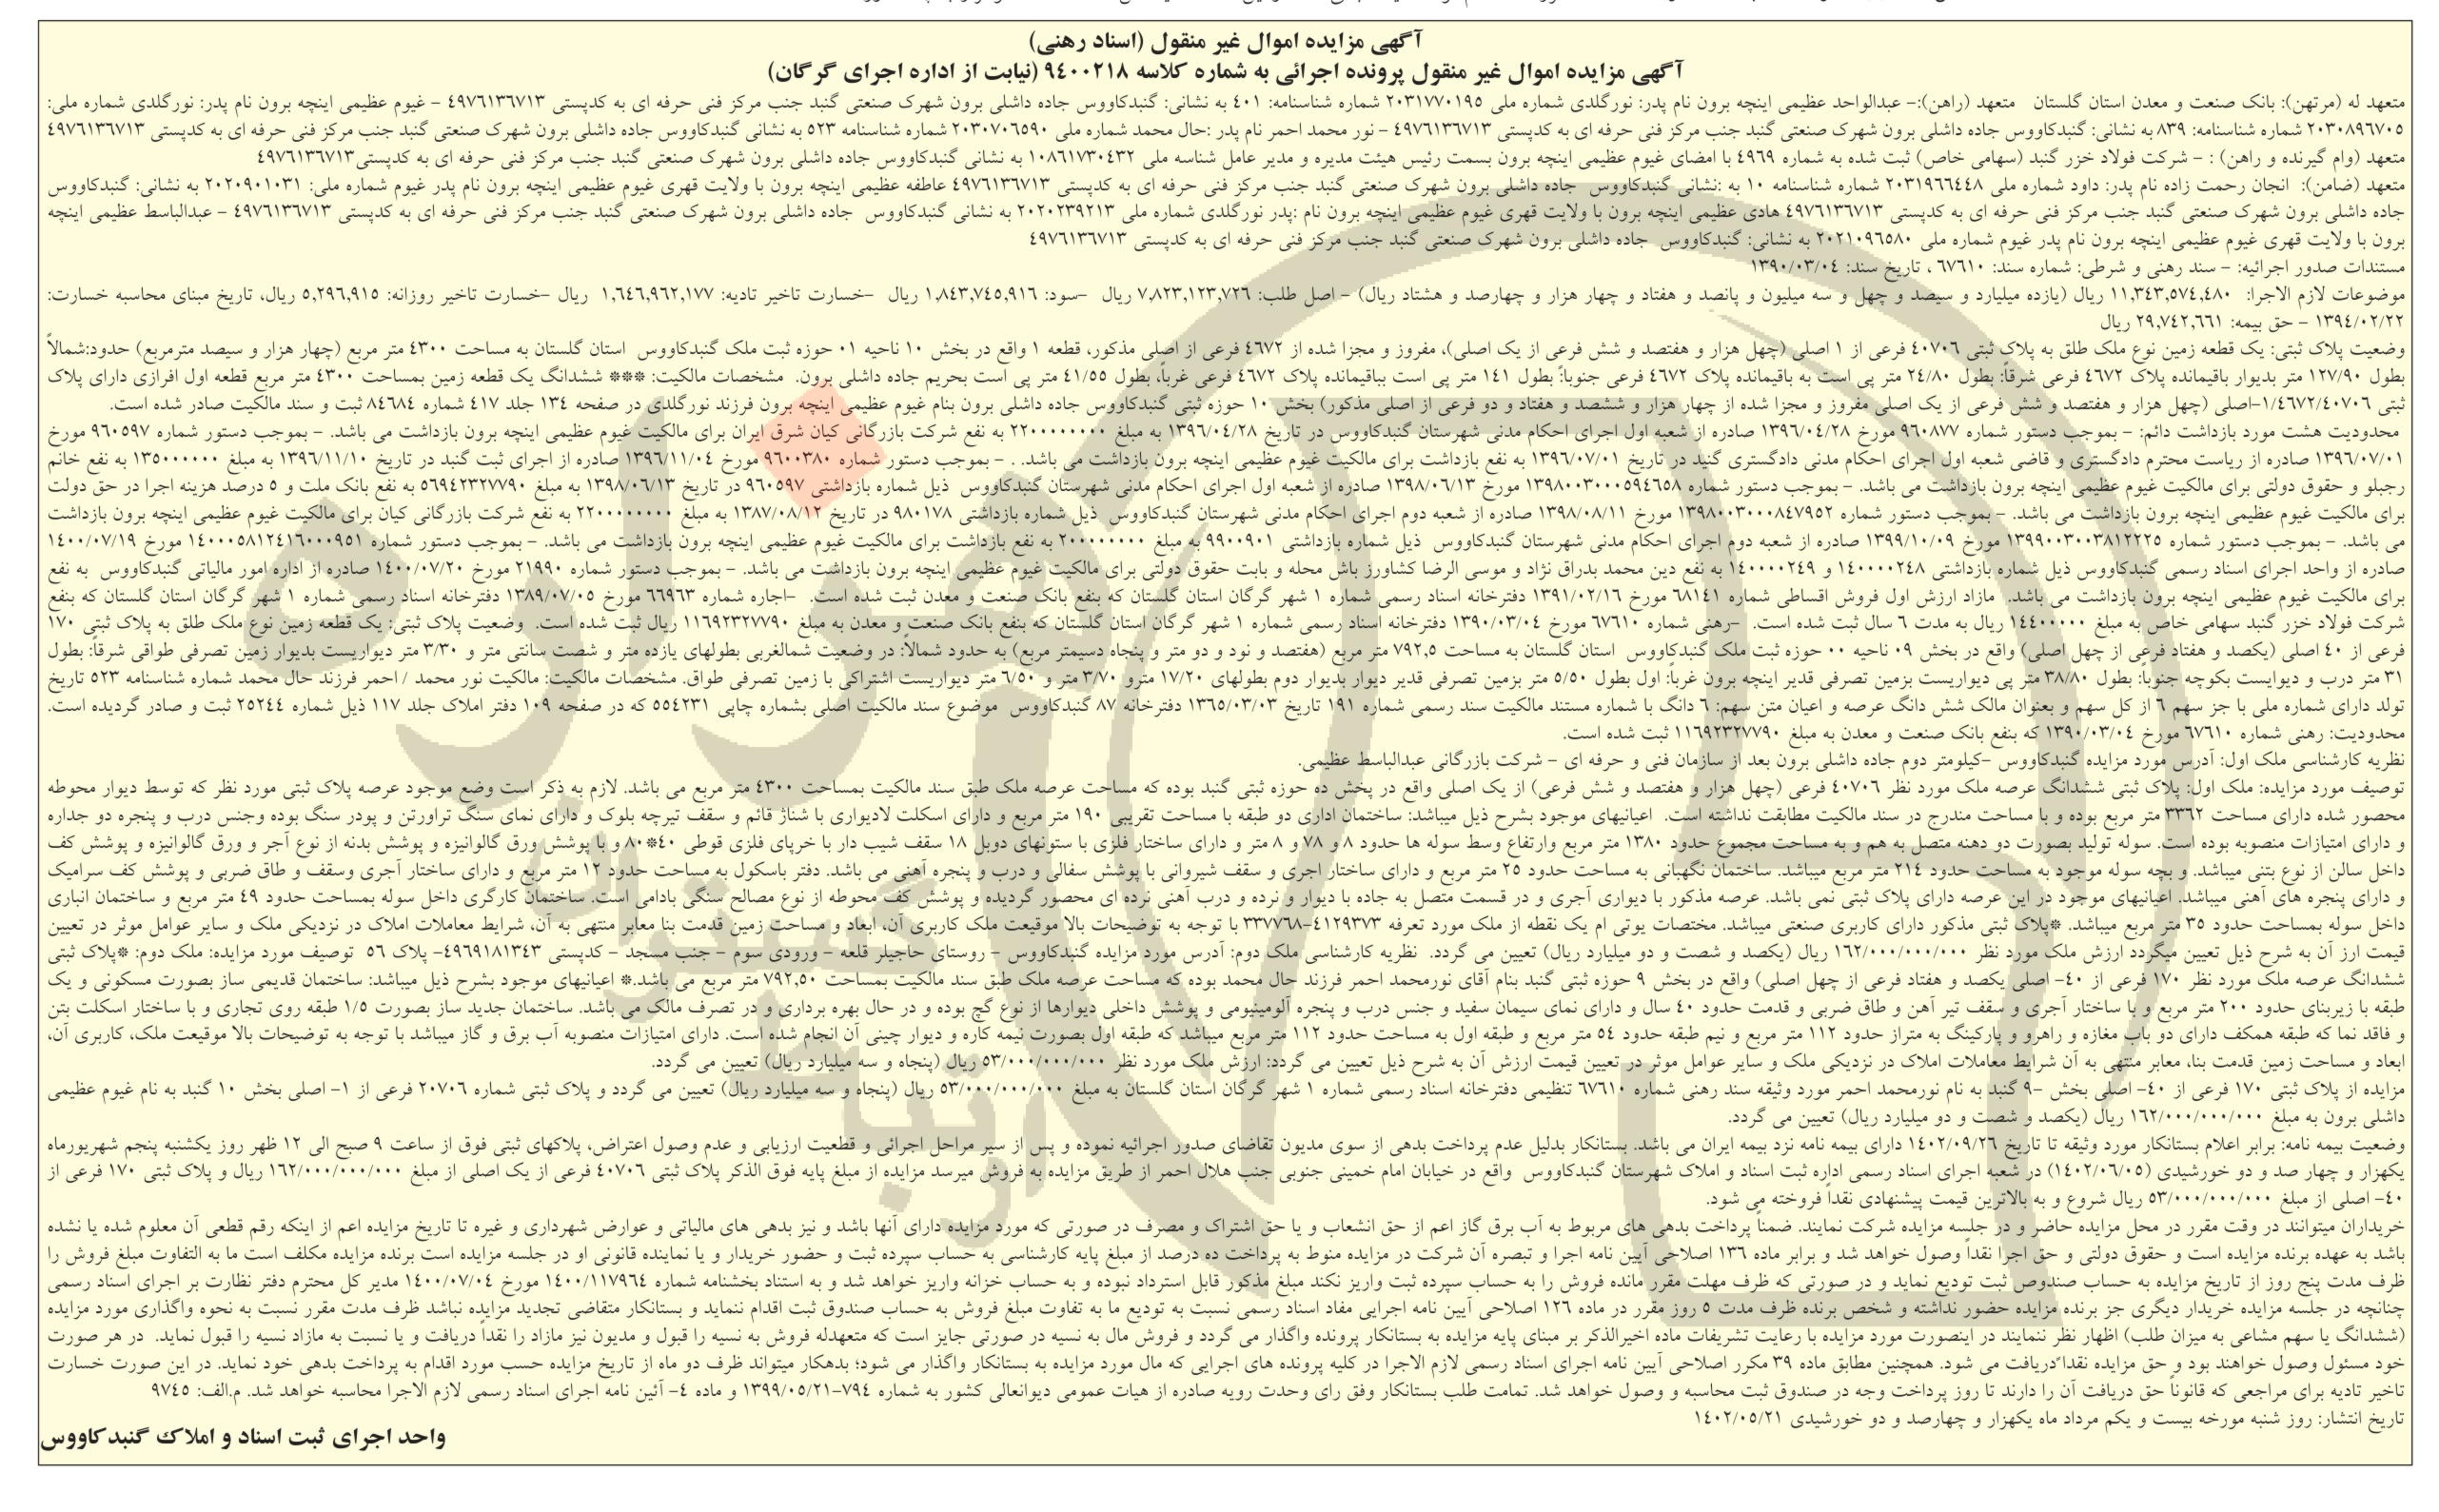 آگهی مزایده اموال غیر منقول (اسناد رهنی)
آگهی مزایده اموال غیر منقول پرونده اجرائی به شماره کلاسه ٩٤٠٠٢١٨ (نیابت از اداره اجرای گرگان)
متعهد له (مرتهن): بانک صنعت و معدن استان گلستان متعهد (راهن):- عبدالواحد عظیمی اینچه برون نام پدر: نورگلدی شماره ملی ٢٠٣١٧٧٠١٩٥ شماره شناسنامه: ٤٠١ به نشانی: گنبدکاووس جاده داشلی برون شهرک صنعتی گنبد جنب مرکز فنی حرفه ای به کدپستی ٤٩٧٦١٣٦٧١٣ - غیوم عظیمی اینچه برون نام پدر: نورگلدی شماره ملی:
٢٠٣٠٨٩٦٧٠٥ شماره شناسنامه: ٨٣٩ به نشانی: گنبدکاووس جاده داشلی برون شهرک صنعتی گنبد جنب مرکز فنی حرفه ای به کدپستی ٤٩٧٦١٣٦٧١٣ - نور محمد احمر نام پدر :حال محمد شماره ملی ٢٠٣٠٧٠٦٥٩٠ شماره شناسنامه ٥٢٣ به نشانی گنبدکاووس جاده داشلی برون شهرک صنعتی گنبد جنب مرکز فنی حرفه ای به کدپستی ٤٩٧٦١٣٦٧١٣
متعهد (وام گیرنده و راهن) : - شرکت فولاد خزر گنبد (سهامی خاص) ثبت شده به شماره ٤٩٦٩ با امضای غیوم عظیمی اینچه برون بسمت رئیس هیئت مدیره و مدیر عامل شناسه ملی ١٠٨٦١٧٣٠٤٣٢ به نشانی گنبدکاووس جاده داشلی برون شهرک صنعتی گنبد جنب مرکز فنی حرفه ای به کدپستی٤٩٧٦١٣٦٧١٣
متعهد (ضامن): انجان رحمت زاده نام پدر: داود شماره ملی ٢٠٣١٩٦٦٤٤٨ شماره شناسنامه ١٠ به :نشانی گنبدکاووس جاده داشلی برون شهرک صنعتی گنبد جنب مرکز فنی حرفه ای به کدپستی ٤٩٧٦١٣٦٧١٣ عاطفه عظیمی اینچه برون با ولایت قهری غیوم عظیمی اینچه برون نام پدر غیوم شماره ملی: ٢٠٢٠٩٠١٠٣١ به نشانی: گنبدکاووس
جاده داشلی برون شهرک صنعتی گنبد جنب مرکز فنی حرفه ای به کدپستی ٤٩٧٦١٣٦٧١٣ هادی عظیمی اینچه برون با ولایت قهری غیوم عظیمی اینچه برون نام :پدر نورگلدی شماره ملی ٢٠٢٠٢٣٩٢١٣ به نشانی گنبدکاووس جاده داشلی برون شهرک صنعتی گنبد جنب مرکز فنی حرفه ای به کدپستی ٤٩٧٦١٣٦٧١٣ - عبدالباسط عظیمی اینچه
برون با ولایت قهری غیوم عظیمی اینچه برون نام پدر غیوم شماره ملی ٢٠٢١٠٩٦٥٨٠ به نشانی: گنبدکاووس جاده داشلی برون شهرک صنعتی گنبد جنب مرکز فنی حرفه ای به کدپستی ٤٩٧٦١٣٦٧١٣
مستندات صدور اجرائیه: - سند رهنی و شرطی: شماره سند: ٦٧٦١٠ ، تاریخ سند: ١٣٩٠/٠٣/٠٤
موضوعات لازم الاجرا: ١١,٣٤٣,٥٧٤,٤٨٠ ریال (یازده میلیارد و سیصد و چهل و سه میلیون و پانصد و هفتاد و چهار هزار و چهارصد و هشتاد ریال) - اصل طلب: ٧,٨٢٣,١٢٣,٧٢٦ ریال -سود: ١,٨٤٣,٧٤٥,٩١٦ ریال -خسارت تاخیر تادیه: ١,٦٤٦,٩٦٢,١٧٧ ریال -خسارت تاخیر روزانه: ٥,٢٩٦,٩١٥ ریال، تاریخ مبنای محاسبه خسارت:
١٣٩٤/٠٢/٢٢ - حق بیمه: ٢٩,٧٤٢,٦٦١ ریال
وضعیت پلاک ثبتی: یک قطعه زمین نوع ملک طلق به پلاک ثبتی ٤٠٧٠٦ فرعی از ١ اصلی (چهل هزار و هفتصد و شش فرعی از یک اصلی)، مفروز و مجزا شده از ٤٦٧٢ فرعی از اصلی مذکور، قطعه ١ واقع در بخش ١٠ ناحیه ٠١ حوزه ثبت ملک گنبدکاووس استان گلستان به مساحت ٤٣٠٠ متر مربع (چهار هزار و سیصد مترمربع) حدود:شمالاً
بطول ١٢٧/٩٠ متر بدیوار باقیمانده پلاک ٤٦٧٢ فرعی شرقاً: بطول ٢٤/٨٠ متر پی است به باقیمانده پلاک ٤٦٧٢ فرعی جنوباً: بطول ١٤١ متر پی است بباقیمانده پلاک ٤٦٧٢ فرعی غرباً، بطول ٤١/٥٥ متر پی است بحریم جاده داشلی برون. مشخصات مالکیت: *** ششدانگ یک قطعه زمین بمساحت ٤٣٠٠ متر مربع قطعه اول افرازی دارای پلاک
ثبتی ١/٤٦٧٢/٤٠٧٠٦-اصلی (چهل هزار و هفتصد و شش فرعی از یک اصلی مفروز و مجزا شده از چهار هزار و ششصد و هفتاد و دو فرعی از اصلی مذکور) بخش ١٠ حوزه ثبتی گنبدکاووس جاده داشلی برون بنام غیوم عظیمی اینچه برون فرزند نورگلدی در صفحه ١٣٤ جلد ٤١٧ شماره ٨٤٦٨٤ ثبت و سند مالکیت صادر شده است.
محدودیت هشت مورد بازداشت دائم: - بموجب دستور شماره ٩٦٠٨٧٧ مورخ ١٣٩٦/٠٤/٢٨ صادره از شعبه اول اجرای احکام مدنی شهرستان گنبدکاووس در تاریخ ١٣٩٦/٠٤/٢٨ به مبلغ ٢٢٠٠٠٠٠٠٠٠٠ به نفع شرکت بازرگانی کیان شرق ایران برای مالکیت غیوم عظیمی اینچه برون بازداشت می باشد. - بموجب دستور شماره ٩٦٠٥٩٧ مورخ
١٣٩٦/٠٧/٠١ صادره از ریاست محترم دادگستری و قاضی شعبه اول اجرای احکام مدنی دادگستری گنبد در تاریخ ١٣٩٦/٠٧/٠١ به نفع بازداشت برای مالکیت غیوم عظیمی اینچه برون بازداشت می باشد. . - بموجب دستور شماره ٩٦٠٠٣٨٠ مورخ ١٣٩٦/١١/٠٤ صادره از اجرای ثبت گنبد در تاریخ ١٣٩٦/١١/١٠ به مبلغ ١٣٥٠٠٠٠٠٠ به نفع خانم
رجبلو و حقوق دولتی برای مالکیت غیوم عظیمی اینچه برون بازداشت می باشد. - بموجب دستور شماره ١٣٩٨٠٠٣٠٠٠٥٩٤٦٥٨ مورخ ١٣٩٨/٠٦/١٣ صادره از شعبه اول اجرای احکام مدنی شهرستان گنبدکاووس ذیل شماره بازداشتی ٩٦٠٥٩٧ در تاریخ ١٣٩٨/٠٦/١٣ به مبلغ ٥٦٩٤٢٣٢٧٧٩٠ به نفع بانک ملت و ٥ درصد هزینه اجرا در حق دولت
برای مالکیت غیوم عظیمی اینچه برون بازداشت می باشد. - بموجب دستور شماره ١٣٩٨٠٠٣٠٠٠٨٤٧٩٥٢ مورخ ١٣٩٨/٠٨/١١ صادره از شعبه دوم اجرای احکام مدنی شهرستان گنبدکاووس ذیل شماره بازداشتی ٩٨٠١٧٨ در تاریخ ١٣٨٧/٠٨/١٢ به مبلغ ٢٢٠٠٠٠٠٠٠٠ به نفع شرکت بازرگانی کیان برای مالکیت غیوم عظیمی اینچه برون بازداشت
می باشد. - بموجب دستور شماره ١٣٩٩٠٠٣٠٠٣٨١٢٢٢٥ مورخ ١٣٩٩/١٠/٠٩ صادره از شعبه دوم اجرای احکام مدنی شهرستان گنبدکاووس ذیل شماره بازداشتی ٩٩٠٠٩٠١ به مبلغ ٢٠٠٠٠٠٠٠٠ به نفع بازداشت برای مالکیت غیوم عظیمی اینچه برون بازداشت می باشد. - بموجب دستور شماره ١٤٠٠٠٥٨١٢٤١٦٠٠٠٩٥١ مورخ ١٤٠٠/٠٧/١٩
صادره از واحد اجرای اسناد رسمی گنبدکاووس ذیل شماره بازداشتی ١٤٠٠٠٠٢٤٨ و ١٤٠٠٠٠٢٤٩ به نفع دین محمد بدراق نژاد و موسی الرضا کشاورز باش محله و بابت حقوق دولتی برای مالکیت غیوم عظیمی اینچه برون بازداشت می باشد. - بموجب دستور شماره ٢١٩٩٠ مورخ ١٤٠٠/٠٧/٢٠ صادره از اداره امور مالیاتی گنبدکاووس به نفع
برای مالکیت غیوم عظیمی اینچه برون بازداشت می باشد. مازاد ارزش اول فروش اقساطی شماره ٦٨١٤١ مورخ ١٣٩١/٠٢/١٦ دفترخانه اسناد رسمی شماره ١ شهر گرگان استان گلستان که بنفع بانک صنعت و معدن ثبت شده است. -اجاره شماره ٦٦٩٦٣ مورخ ١٣٨٩/٠٧/٠٥ دفترخانه اسناد رسمی شماره ١ شهر گرگان استان گلستان که بنفع
شرکت فولاد خزر گنبد سهامی خاص به مبلغ ١٤٤٠٠٠٠٠ ریال به مدت ٦ سال ثبت شده است. -رهنی شماره ٦٧٦١٠ مورخ ١٣٩٠/٠٣/٠٤ دفترخانه اسناد رسمی شماره ١ شهر گرگان استان گلستان که بنفع بانک صنعت و معدن به مبلغ ١١٦٩٢٣٢٧٧٩٠ ریال ثبت شده است. وضعیت پلاک ثبتی: یک قطعه زمین نوع ملک طلق به پلاک ثبتی ١٧٠
فرعی از ٤٠ اصلی (یکصد و هفتاد فرعی از چهل اصلی) واقع در بخش ٠٩ ناحیه ٠٠ حوزه ثبت ملک گنبدکاووس استان گلستان به مساحت ٧٩٢,٥ متر مربع (هفتصد و نود و دو متر و پنجاه دسیمتر مربع) به حدود شمالاً: در وضعیت شمالغربی بطولهای یازده متر و شصت سانتی متر و ٣/٣٠ متر دیواریست بدیوار زمین تصرفی طواقی شرقاً: بطول
٣١ متر درب و دیوایست بکوچه جنوباً: بطول ٣٨/٨٠ متر پی دیواریست بزمین تصرفی قدیر اینچه برون غرباً: اول بطول ٥/٥٠ متر بزمین تصرفی قدیر دیوار بدیوار دوم بطولهای ١٧/٢٠ مترو ٣/٧٠ متر و ٦/٥٠ متر دیواریست اشتراکی با زمین تصرفی طواق. مشخصات مالکیت: مالکیت نور محمد / احمر فرزند حال محمد شماره شناسنامه ٥٢٣ تاریخ
تولد دارای شماره ملی با جز سهم ٦ از کل سهم و بعنوان مالک شش دانگ عرصه و اعیان متن سهم: ٦ دانگ با شماره مستند مالکیت سند رسمی شماره ١٩١ تاریخ ١٣٦٥/٠٣/٠٣ دفترخانه ٨٧ گنبدکاووس موضوع سند مالکیت اصلی بشماره چاپی ٥٥٤٢٣١ که در صفحه ١٠٩ دفتر املاک جلد ١١٧ ذیل شماره ٢٥٢٤٤ ثبت و صادر گردیده است.
محدودیت: رهنی شماره ٦٧٦١٠ مورخ ١٣٩٠/٠٣/٠٤ که بنفع بانک صنعت و معدن به مبلغ ١١٦٩٢٣٢٧٧٩٠ ثبت شده است.
نظریه کارشناسی ملک اول: آدرس مورد مزایده گنبدکاووس -کیلومتر دوم جاده داشلی برون بعد از سازمان فنی و حرفه ای - شرکت بازرگانی عبدالباسط عظیمی.
توصیف مورد مزایده: ملک اول: پلاک ثبتی ششدانگ عرصه ملک مورد نظر ٤٠٧٠٦ فرعی (چهل هزار و هفتصد و شش فرعی) از یک اصلی واقع در پخش ده حوزه ثبتی گنبد بوده که مساحت عرصه ملک طبق سند مالکیت بمساحت ٤٣٠٠ متر مربع می باشد. لازم به ذکر است وضع موجود عرصه پلاک ثبتی مورد نظر که توسط دیوار محوطه
محصور شده دارای مساحت ٣٣٦٢ متر مربع بوده و با مساحت مندرج در سند مالکیت مطابقت نداشته است. اعیانیهای موجود بشرح ذیل میباشد: ساختمان اداری دو طبقه با مساحت تقریبی ١٩٠ متر مربع و دارای اسکلت لادیواری با شناژ قائم و سقف تیرچه بلوک و دارای نمای سنگ تراورتن و پودر سنگ بوده وجنس درب و پنجره دو جداره
و دارای امتیازات منصوبه بوده است. سوله تولید بصورت دو دهنه متصل به هم و به مساحت مجموع حدود ١٣٨٠ متر مربع وارتفاع وسط سوله ها حدود ٨ و ٧٨ و ٨ متر و دارای ساختار فلزی با ستونهای دوبل ١٨ سقف شیب دار با خرپای فلزی قوطی ٤٠*٨٠ و با پوشش ورق گالوانیزه و پوشش بدنه از نوع آجر و ورق گالوانیزه و پوشش کف
داخل سالن از نوع بتنی میباشد. و بچه سوله موجود به مساحت حدود ٢١٤ متر مربع میباشد. ساختمان نگهبانی به مساحت حدود ٢٥ متر مربع و دارای ساختار اجری و سقف شیروانی با پوشش سفالی و درب و پنجره آهنی می باشد. دفتر باسکول به مساحت حدود ١٢ متر مربع و دارای ساختار آجری وسقف و طاق ضربی و پوشش کف سرامیک
و دارای پنجره های آهنی میباشد. اعیانیهای موجود در این عرصه دارای پلاک ثبتی نمی باشد. عرصه مذکور با دیواری آجری و در قسمت متصل به جاده با دیوار و نرده و درب آهنی نرده ای محصور گردیده و پوشش کف محوطه از نوع مصالح سنگی بادامی است. ساختمان کارگری داخل سوله بمساحت حدود ٤٩ متر مربع و ساختمان انباری
داخل سوله بمساحت حدود ٣٥ متر مربع میباشد. *پلاک ثبتی مذکور دارای کاربری صنعتی میباشد. مختصات یوتی ام یک نقطه از ملک مورد تعرفه ٤١٢٩٣٧٣-٣٣٧٧٦٨ با توجه به توضیحات بالا موقعیت ملک کاربری آن، ابعاد و مساحت زمین قدمت بنا معابر منتهی به آن، شرایط معاملات املاک در نزدیکی ملک و سایر عوامل موثر در تعیین
قیمت ارز آن به شرح ذیل تعیین میگردد ارزش ملک مورد نظر ١٦٢/٠٠٠/٠٠٠/٠٠٠ ریال (یکصد و شصت و دو میلیارد ریال) تعیین می گردد. نظریه کارشناسی ملک دوم: آدرس مورد مزایده گنبدکاووس - روستای حاجیلر قلعه - ورودی سوم - جنب مسجد - کدپستی ٤٩٦٩١٨١٣٤٣- پلاک ٥٦ توصیف مورد مزایده: ملک دوم: *پلاک ثبتی
ششدانگ عرصه ملک مورد نظر ١٧٠ فرعی از ٤٠- اصلی یکصد و هفتاد فرعی از چهل اصلی) واقع در بخش ٩ حوزه ثبتی گنبد بنام آقای نورمحمد احمر فرزند حال محمد بوده که مساحت عرصه ملک طبق سند مالکیت بمساحت ٧٩٢,٥٠ متر مربع می باشد.* اعیانیهای موجود بشرح ذیل میباشد: ساختمان قدیمی ساز بصورت مسکونی و یک
طبقه با زیربنای حدود ٢٠٠ متر مربع و با ساختار آجری و سقف تیر آهن و طاق ضربی و قدمت حدود ٤٠ سال و دارای نمای سیمان سفید و جنس درب و پنجره آلومینیومی و پوشش داخلی دیوارها از نوع گچ بوده و در حال بهره برداری و در تصرف مالک می باشد. ساختمان جدید ساز بصورت ١/٥ طبقه روی تجاری و با ساختار اسکلت بتن
و فاقد نما که طبقه همکف دارای دو باب مغازه و راهرو و پارکینگ به متراز حدود ١١٢ متر مربع و نیم طبقه حدود ٥٤ متر مربع و طبقه اول به مساحت حدود ١١٢ متر مربع میباشد که طبقه اول بصورت نیمه کاره و دیوار چینی آن انجام شده است. دارای امتیازات منصوبه آب برق و گاز میباشد با توجه به توضیحات بالا موقعیت ملک، کاربری آن،
ابعاد و مساحت زمین قدمت بنا، معابر منتهی به آن شرایط معاملات املاک در نزدیکی ملک و سایر عوامل موثر در تعیین قیمت ارزش آن به شرح ذیل تعیین می گردد: ارزش ملک مورد نظر ٥٣/٠٠٠/٠٠٠/٠٠٠ ریال (پنجاه و سه میلیارد ریال) تعیین می گردد.
مزایده از پلاک ثبتی ١٧٠ فرعی از ٤٠- اصلی بخش -٩ گنبد به نام نورمحمد احمر مورد وثیقه سند رهنی شماره ٦٧٦١٠ تنظیمی دفترخانه اسناد رسمی شماره ١ شهر گرگان استان گلستان به مبلغ ٥٣/٠٠٠/٠٠٠/٠٠٠ ریال (پنجاه و سه میلیارد ریال) تعیین می گردد و پلاک ثبتی شماره ٢٠٧٠٦ فرعی از ١- اصلی بخش ١٠ گنبد به نام غیوم عظیمی
داشلی برون به مبلغ ١٦٢/٠٠٠/٠٠٠/٠٠٠ ریال (یکصد و شصت و دو میلیارد ریال) تعیین می گردد.
وضعیت بیمه نامه: برابر اعلام بستانکار مورد وثیقه تا تاریخ ١٤٠٢/٠٩/٢٦ دارای بیمه نامه نزد بیمه ایران می باشد. بستانکار بدلیل عدم پرداخت بدهی از سوی مدیون تقاضای صدور اجرائیه نموده و پس از سیر مراحل اجرائی و قطعیت ارزیابی و عدم وصول اعتراض، پلاکهای ثبتی فوق از ساعت ٩ صبح الی ١٢ ظهر روز یکشنبه پنجم شهریورماه
یکهزار و چهار صد و دو خورشیدی (١٤٠٢/٠٦/٠٥) در شعبه اجرای اسناد رسمی اداره ثبت اسناد و املاک شهرستان گنبدکاووس واقع در خیابان امام خمینی جنوبی جنب هلال احمر از طریق مزایده به فروش میرسد مزایده از مبلغ پایه فوق الذکر پلاک ثبتی ٤٠٧٠٦ فرعی از یک اصلی از مبلغ ١٦٢/٠٠٠/٠٠٠/٠٠٠ ریال و پلاک ثبتی ١٧٠ فرعی از
٤٠- اصلی از مبلغ ٥٣/٠٠٠/٠٠٠/٠٠٠ ریال شروع و به بالاترین قیمت پیشنهادی نقداً فروخته می شود.
خریداران میتوانند در وقت مقرر در محل مزایده حاضر و در جلسه مزایده شرکت نمایند. ضمناً پرداخت بدهی های مربوط به آب برق گاز اعم از حق انشعاب و یا حق اشتراک و مصرف در صورتی که مورد مزایده دارای آنها باشد و نیز بدهی های مالیاتی و عوارض شهرداری و غیره تا تاریخ مزایده اعم از اینکه رقم قطعی آن معلوم شده یا نشده
باشد به عهده برنده مزایده است و حقوق دولتی و حق اجرا نقداً وصول خواهد شد و برابر ماده ١٣٦ اصلاحی آیین نامه اجرا و تبصره آن شرکت در مزایده منوط به پرداخت ده درصد از مبلغ پایه کارشناسی به حساب سپرده ثبت و حضور خریدار و یا نماینده قانونی او در جلسه مزایده است برنده مزایده مکلف است ما به التفاوت مبلغ فروش را
ظرف مدت پنج روز از تاریخ مزایده به حساب صندوص ثبت تودیع نماید و در صورتی که ظرف مهلت مقرر مانده فروش را به حساب سپرده ثبت واریز نکند مبلغ مذکور قابل استرداد نبوده و به حساب خزانه واریز خواهد شد و به استناد بخشنامه شماره ١٤٠٠/١١٧٩٦٤ مورخ ١٤٠٠/٠٧/٠٤ مدیر کل محترم دفتر نظارت بر اجرای اسناد رسمی
چنانچه در جلسه مزایده خریدار دیگری جز برنده مزایده حضور نداشته و شخص برنده ظرف مدت ٥ روز مقرر در ماده ١٢٦ اصلاحی آیین نامه اجرایی مفاد اسناد رسمی نسبت به تودیع ما به تفاوت مبلغ فروش به حساب صندوق ثبت اقدام ننماید و بستانکار متقاضی تجدید مزایده نباشد ظرف مدت مقرر نسبت به نحوه واگذاری مورد مزایده
(ششدانگ یا سهم مشاعی به میزان طلب) اظهار نظر ننمایند در اینصورت مورد مزایده با رعایت تشریفات ماده اخیرالذکر بر مبنای پایه مزایده به بستانکار پرونده واگذار می گردد و فروش مال به نسیه در صورتی جایز است که متعهدله فروش به نسیه را قبول و مدیون نیز مازاد را نقداً دریافت و یا نسبت به مازاد نسیه را قبول نماید. در هر صورت
خود مسئول وصول خواهند بود و حق مزایده نقداً دریافت می شود. همچنین مطابق ماده ٣٩ مکرر اصلاحی آیین نامه اجرای اسناد رسمی لازم الاجرا در کلیه پرونده های اجرایی که مال مورد مزایده به بستانکار واگذار می شود؛ بدهکار میتواند ظرف دو ماه از تاریخ مزایده حسب مورد اقدام به پرداخت بدهی خود نماید. در این صورت خسارت
تاخیر تادیه برای مراجعی که قانوناً حق دریافت آن را دارند تا روز پرداخت وجه در صندوق ثبت محاسبه و وصول خواهد شد. تمامت طلب بستانکار وفق رای وحدت رویه صادره از هیات عمومی دیوانعالی کشور به شماره ٧٩٤-١٣٩٩/٠٥/٢١ و ماده ٤- آئین نامه اجرای اسناد رسمی لازم الاجرا محاسبه خواهد شد. م.الف: ٩٧٤٥
تاریخ انتشار: روز شنبه مورخه بیست و یکم مرداد ماه یکهزار و چهارصد و دو خورشیدی ١٤٠٢/٠٥/٢١
واحد اجرای ثبت اسناد و املاک گنبدکاووس